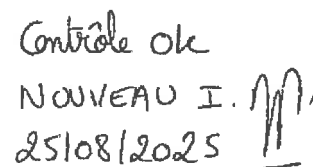 Contrôle Ok
NOUVEAU I.
25/08/2025